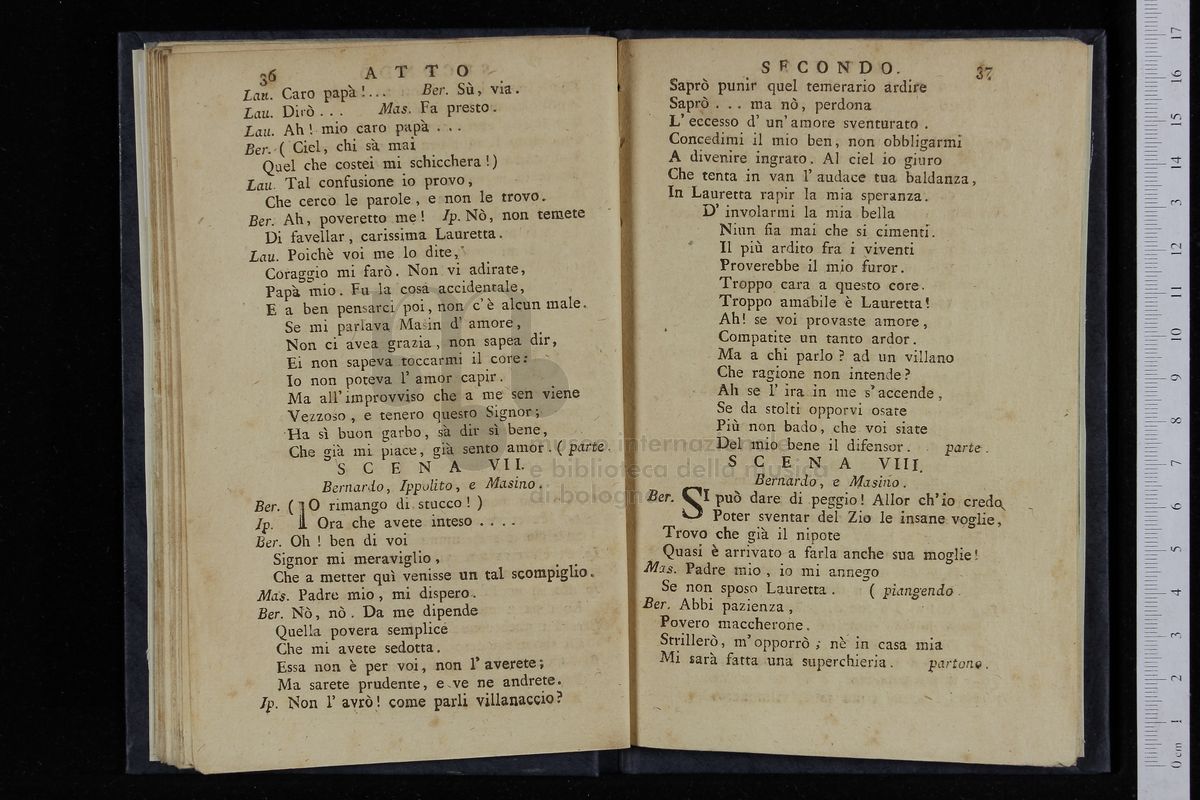 36
ATTO
Lau. Caro papà!... Ber. Sù, via.
Lau. Dirò... Mas. Fa presto.
Lau. Ah! mio caro papà...
Ber. (Ciel, chi sà mai
Quel che costei mi schicchera!)
Lau. Tal confusione io provo,
Che cerco le parole, e non le trovo.
Ber. Ah, poveretto me! Ip. Nò, non temete
Di favellar, carissima Lauretta.
Lau. Poichè voi me lo dite,
Coraggio mi farò. Non vi adirate,
Papà mio. Fu la cosa accidentale,
E a ben pensarci poi, non c'è alcun male.
Se mi parlava Masin d'amore,
Non ci avea grazia, non sapea dir,
Ei non sapeva toccarmi il core:
Io non poteva l'amor capir.
Ma all'improvviso che a me sen viene
Vezzoso, e tenero questo Signor;
Ha sì buon garbo, sà dir sì bene,
Che già mi piace, già sento amor. (parte.
SCENA VII.
Bernardo, Ippolito, e Masino.
Ber. (IO rimango di stucco!)
Ip. Ora che avete inteso....
Ber. Oh! ben di voi
Signor mi meraviglio,
Che a metter quì venisse un tal scompiglio.
Mas. Padre mio, mi dispero.
Ber. Nò, nò. Da me dipende
Quella povera semplice
Che mi avete sedotta.
Essa non è per voi, non l'averete;
Ma sarete prudente, e ve ne andrete.
Ip. Non l'avrò! come parli villanaccio?
SECONDO.
37
Saprò punir quel temerario ardire
Saprò... ma nò, perdona
L'eccesso d'un'amore sventurato.
Concedimi il mio ben, non obbligarmi
A divenire ingrato. Al ciel io giuro
Che tenta in van l'audace tua baldanza,
In Lauretta rapir la mia speranza.
D'involarmi la mia bella
Niun fia mai che si cimenti.
Il più ardito fra i viventi
Proverebbe il mio furor.
Troppo cara a questo core.
Troppo amabile è Lauretta!
Ah! se voi provaste amore,
Compatite un tanto ardor.
Ma a chi parlo? ad un villano
Che ragione non intende?
Ah se l'ira in me s'accende,
Se da stolti opporvi osate
Più non bado, che voi siate
Del mio bene il difensor. parte.
SCENA VIII.
Bernardo, e Masino.
Ber. SI può dare di peggio! Allor ch'io credo
Poter sventar del Zio le insane voglie,
Trovo che già il nipote
Quasi è arrivato a farla anche sua moglie!
Mas. Padre mio, io mi annego
Se non sposo Lauretta. (piangendo.
Ber. Abbi pazienza,
Povero maccherone.
Strillerò, m'opporrò; nè in casa mia
Mi sarà fatta una superchieria. partono.
museo internazionale
e biblioteca della musica
di bologna
0 cm 1 2 3 4 5 6 7 8 9 10 11 12 13 14 15 16 17